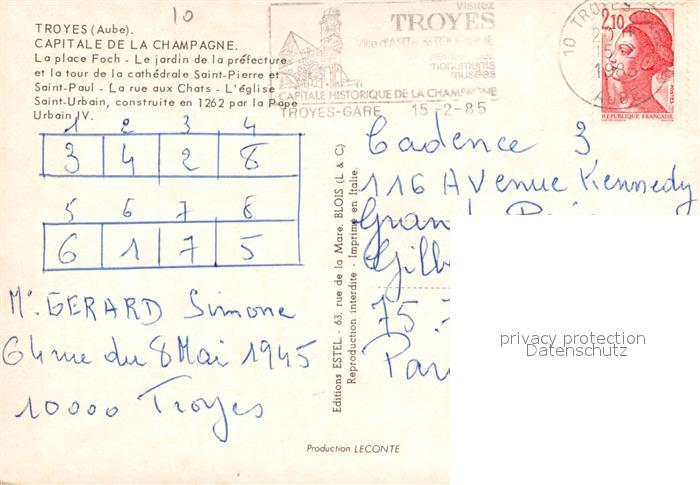 10
TROYES (Aube).
CAPITALE DE LA CHAMPAGNE.
La place Foch - Le jardin de la préfecture
et la tour de la cathédrale Saint-Pierre et
Saint-Paul - La rue aux Chats - L'église
Saint-Urbain, construite en 1262 par la Pape
Urbain IV.
Visitez
TROYES
Ville d'ART et de TOURISME
monuments
musées
CAPITALE HISTORIQUE DE LA CHAMPAGNE
TROYES-GARE 15-2-85
10 TROYES
15
1985
AUBE
2,10
POSTES
REPUBLIQUE FRANÇAISE
1 2 3 4
3 4 2 8
5 6 7 8
6 1 7 5
Me GERARD Simone
64 rue du 8 Mai 1945
10000 Troyes
Editions ESTEL - 63, rue de la Mare, BLOIS (L. & C)
Reproduction interdite - Imprimé en Italie.
Cadence 3
116 Avenue Kennedy
75
privacy protection
Datenschutz
Production LECONTE